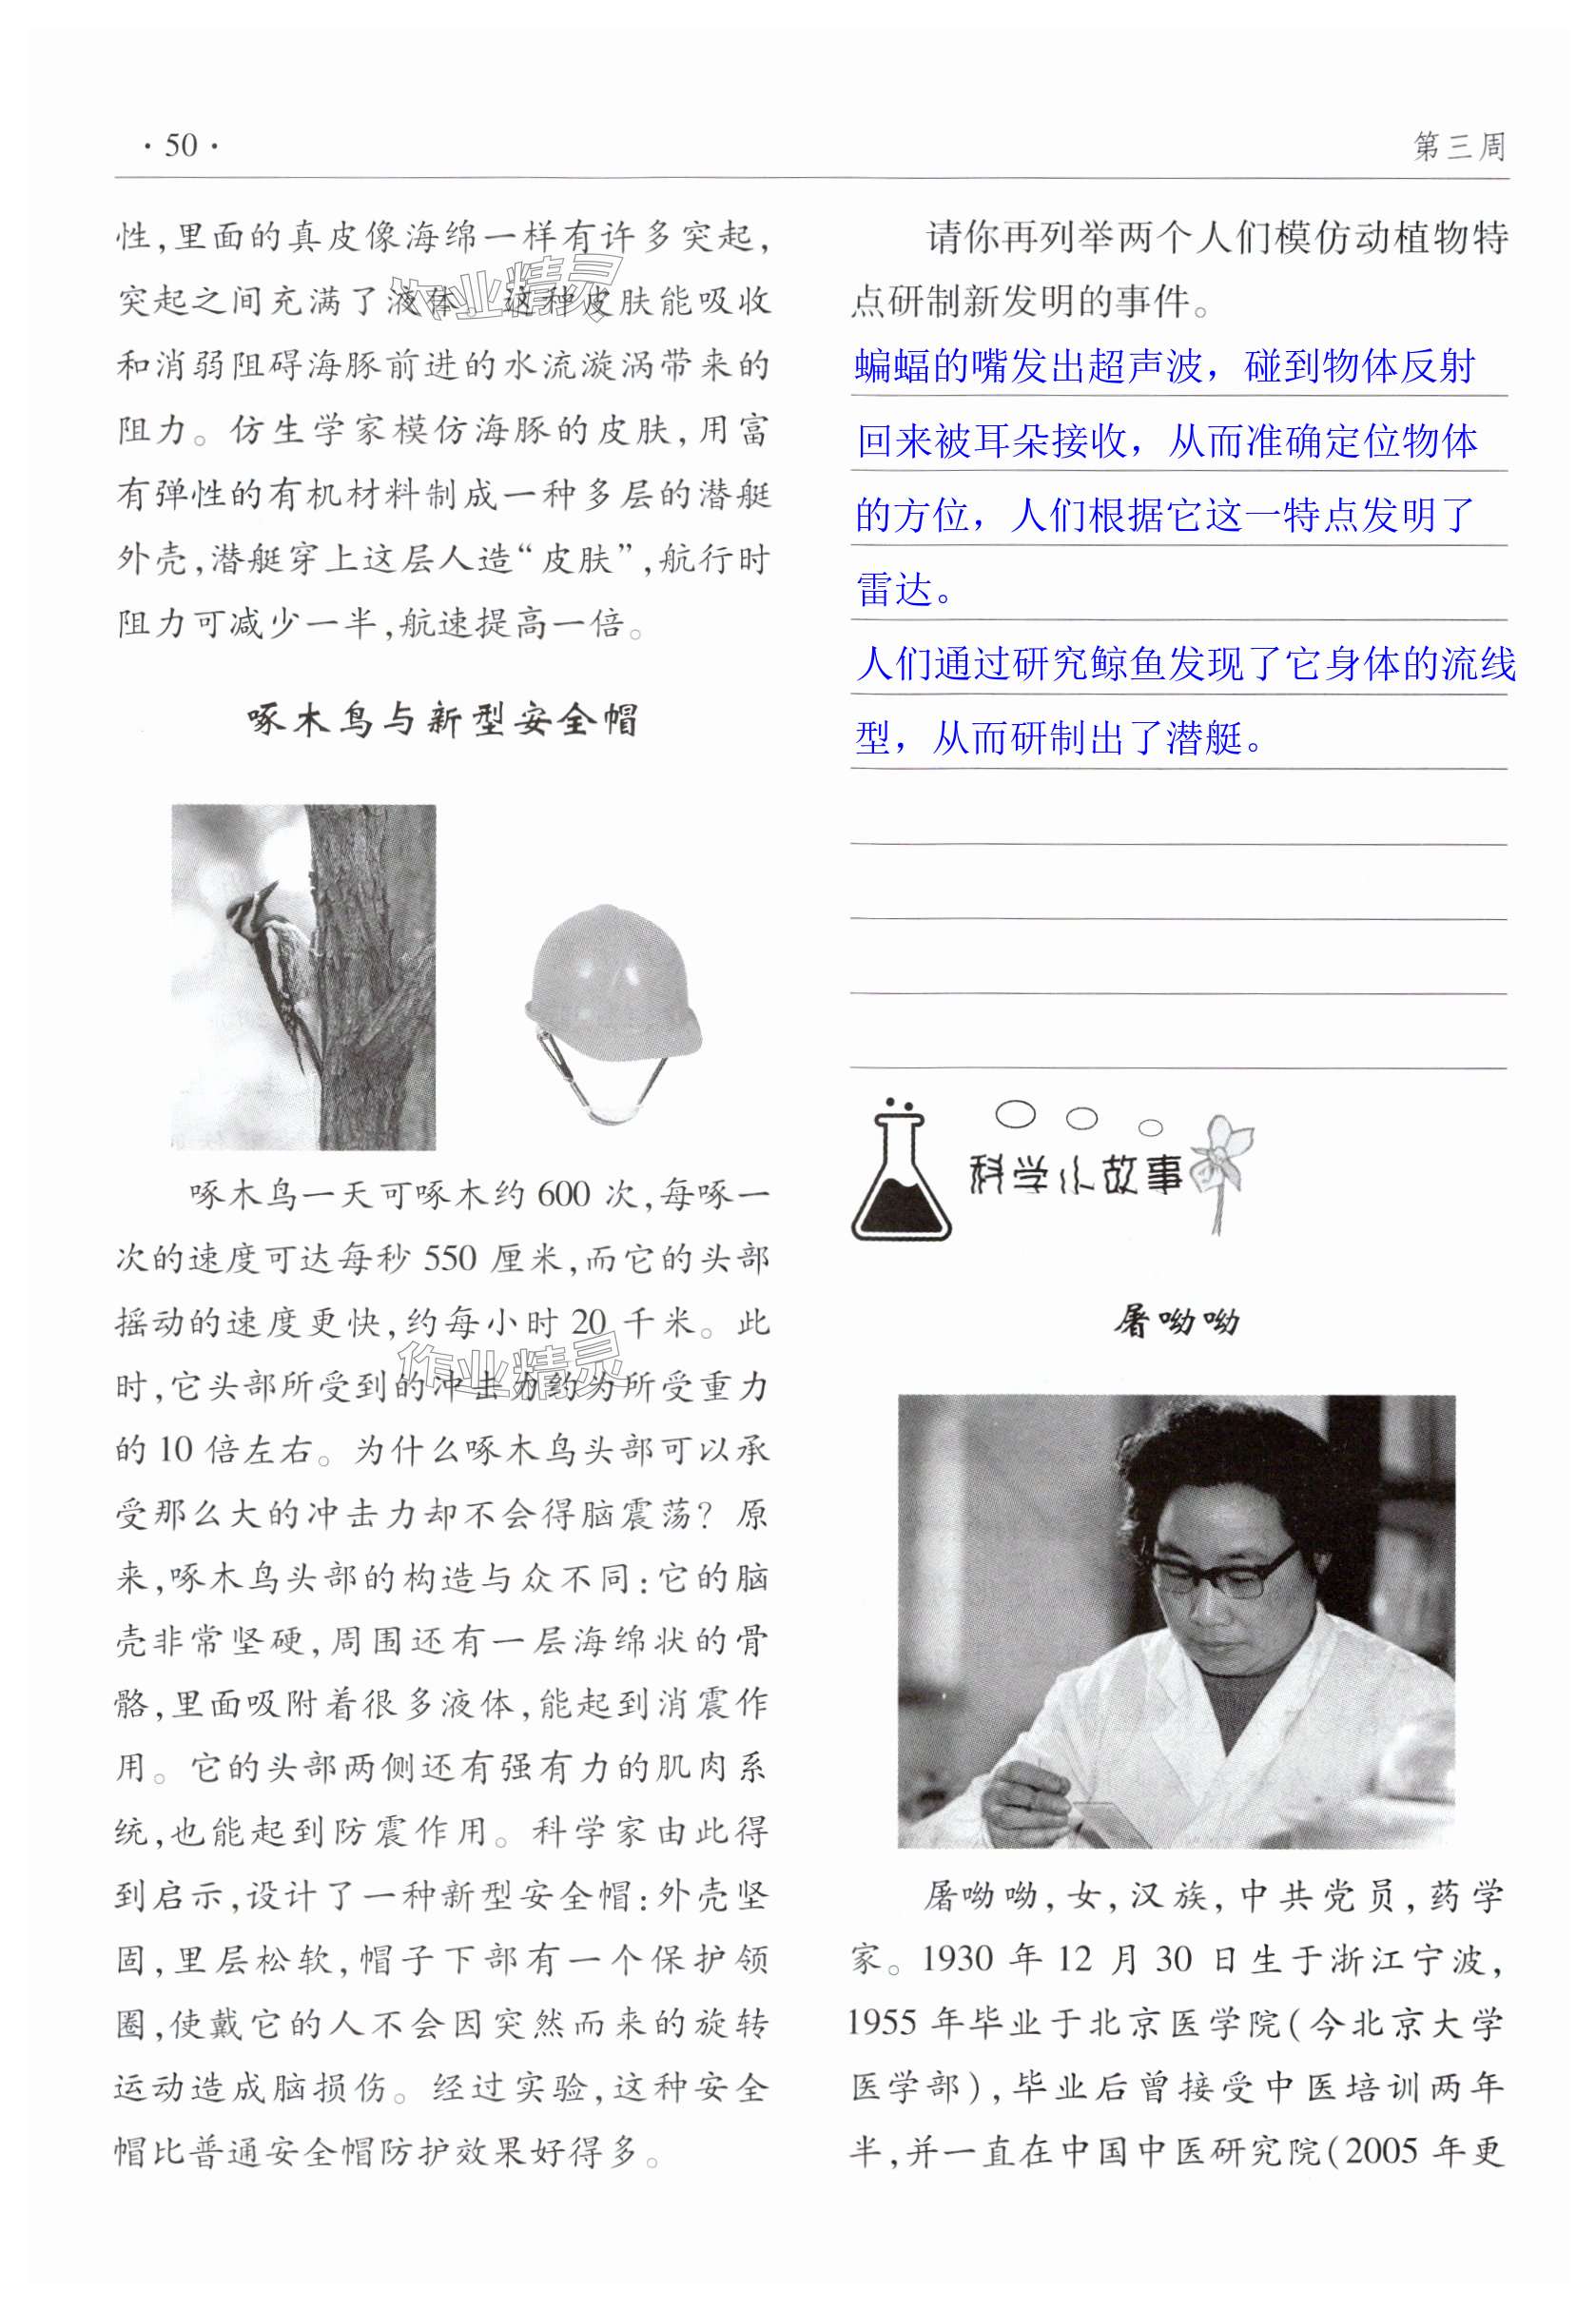 ·50·
第三周
性,里面的真皮像海绵一样有许多突起,
突起之间充满了液体。这种皮肤能吸收
和消弱阻碍海豚前进的水流漩涡带来的
阻力。仿生学家模仿海豚的皮肤,用富
有弹性的有机材料制成一种多层的潜艇
外壳,潜艇穿上这层人造“皮肤”,航行时
阻力可减少一半,航速提高一倍。
啄木鸟与新型安全帽
啄木鸟一天可啄木约600次,每啄一
次的速度可达每秒550厘米,而它的头部
摇动的速度更快,约每小时20千米。此
时,它头部所受到的冲击力约为所受重力
的10倍左右。为什么啄木鸟头部可以承
受那么大的冲击力却不会得脑震荡?原
来,啄木鸟头部的构造与众不同:它的脑
壳非常坚硬,周围还有一层海绵状的骨
骼,里面吸附着很多液体,能起到消震作
用。它的头部两侧还有强有力的肌肉系
统,也能起到防震作用。科学家由此得
到启示,设计了一种新型安全帽:外壳坚
固,里层松软,帽子下部有一个保护领
圈,使戴它的人不会因突然而来的旋转
运动造成脑损伤。经过实验,这种安全
帽比普通安全帽防护效果好得多。
作业精灵
作业精灵
请你再列举两个人们模仿动植物特
点研制新发明的事件。
蝙蝠的嘴发出超声波，碰到物体反射
回来被耳朵接收，从而准确定位物体
的方位，人们根据它这一特点发明了
雷达。
人们通过研究鲸鱼发现了它身体的流线
型，从而研制出了潜艇。
科学小故事
屠呦呦
屠呦呦,女,汉族,中共党员,药学
家。1930年12月30日生于浙江宁波,
1955年毕业于北京医学院(今北京大学
医学部),毕业后曾接受中医培训两年
半,并一直在中国中医研究院(2005年更